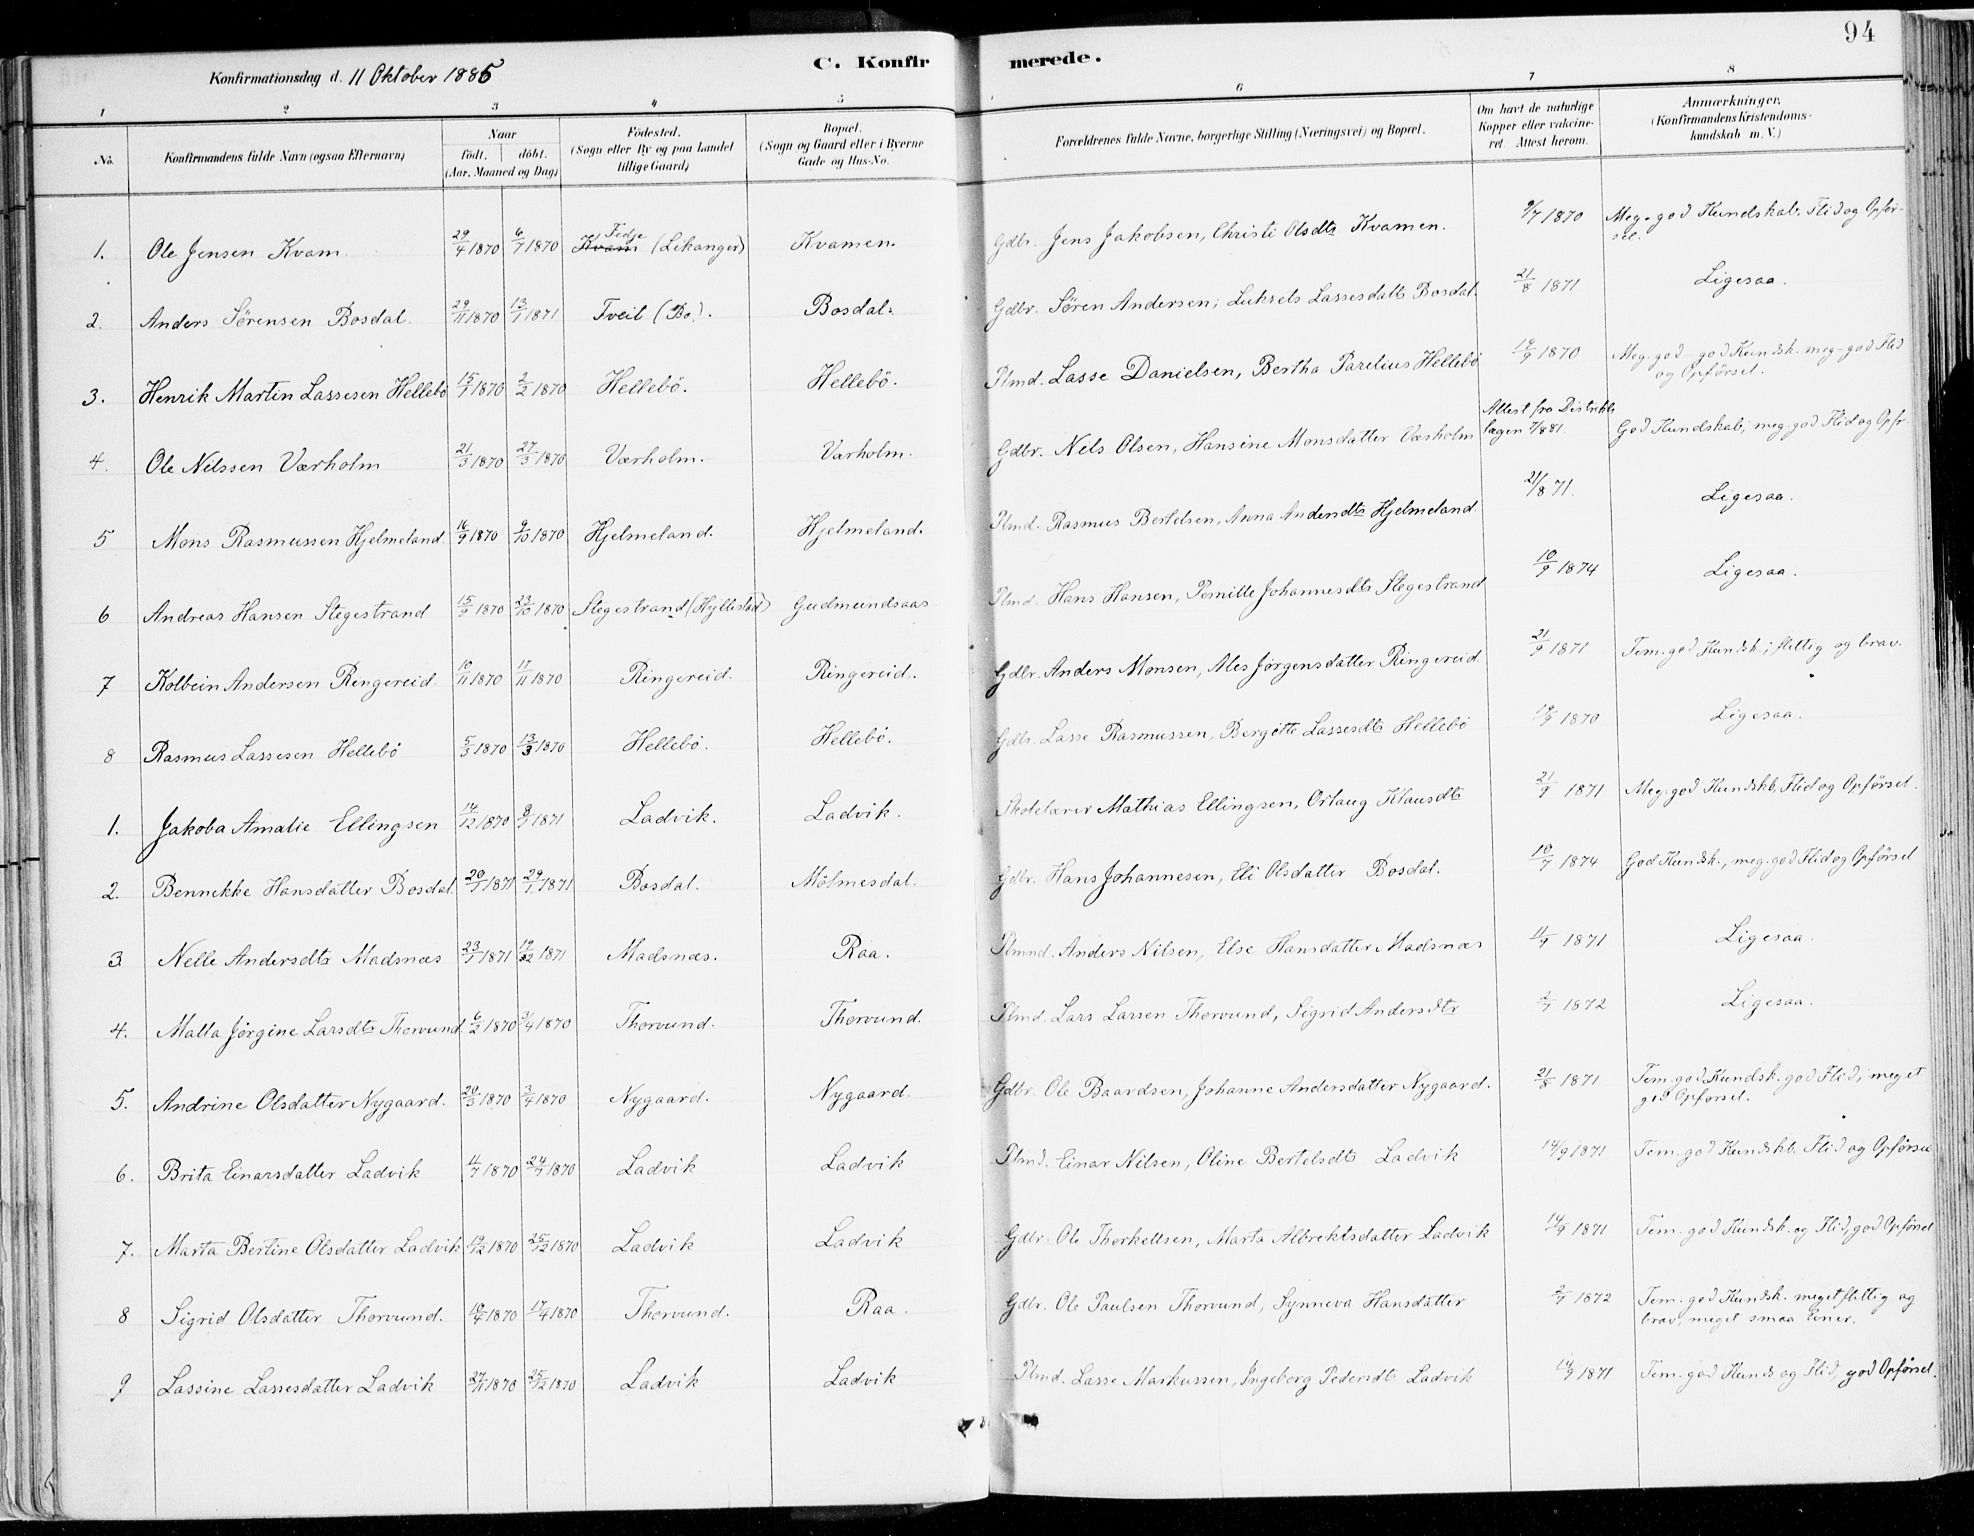 94
Konfirmationsdag d. 11 Oktober 1885
C. Konfirmerede.
1 2 3 4 5 6 7 8
No. Konfirmandens fulde Navn (ogsaa Efternavn) Naar födt. döbt. (Aar, Maaned og Dag) Födested. (Sogn eller By og paa Landet tillige Gaard) Bopæl. (Sogn og Gaard eller i Byerne Gade og Hus-No. Forældrenes fulde Navne, borgerlige Stilling (Næringsvei) og Bopæl. Om havt de naturlige Kopper eller vakcineret. Attest herom. Anmærkninger. (Konfirmandens Kristendomskundskab m. V.)
1. Ole Jensen Kvam 29/4 1870 6/7 1870 Kvam Tidje (Likanger) Kvamen. Gdbr. Jens Jakobsen, Christi Olsdtr Kvamen. 9/7 1870 Meg. god Kundskab. Flid og Opförsel.
2. Anders Sörensen Bosdal. 29/11 1870 13/1 1871 Tveit (Bo). Bosdal. Gdbr. Sören Andersen, Luksels Lassesdattr Bosdal. 21/8 1871 Ligesaa.
3. Henrik Martin Lassesen Hellebö 15/1 1870 2/2 1870 Hellebö. Hellebö. Plmd. Lasse Danielsen, Bertha Parelius Hellebö 1870 Meg. god-god Kundsk. meg-god Flid og Opförsel.
4. Ole Nilssen Værholm 21/3 1870 27/3 1870 Værholm. Værholm. Gdbr. Nils Olsen, Hansine Monsdatter Værholm Attest fra Distriktslægen 881. God Kundskab, meg. god Flid og Opfr.
5 Mons Rasmussen Hjelmeland 16/9 1870 9/10 1870 Hjelmeland. Hjelmeland. Plmd. Rasmus Bertelsen, Anna Andersdtr Hjelmeland 21/8 71. Ligesaa.
6 Andreas Hansen Stegestrand 15/9 1870 23/10 1870 Stegestrand (Hyllestad) Gudmundsaas Plmd. Hans Hansen, Pernille Johannesdtr Stegestrand 10/9 1874 Ligesaa.
7 Kolbein Andersen Ringereid. 10/11 1870 17/11 1870 Ringereid. Ringereid. Gdbr. Anders Monsen, Ales Jörgensdatter Ringereid 21/9 1871 Tem. god Kundsk.; flittig og brav.
8 Rasmus Lassesen Hellebö 5/3 1870 13/3 1870 Hellebö. Hellebö. Gdbr. Lasse Rasmussen, Bergitte Lassesdtr Hellebö 1870 Ligesaa.
1. Jakoba Amalie Ellingsen 14/12 1870 8/1 1871 Ladvik. Ladvik. Skolelærer Mathias Ellingsen, Orlaug Klausdtr 21/9 1871 Meg. god Kundskb, Flid og Opförsel.
2. Bennikke Hansdatter Bosdal. 20/1 1871 29/1 1871 Bosdal. Mölmesdal. Gdbr. Hans Johannesen, Eli Olsdatter Bosdal. 10/9 1874 God Kundsk., meg. god Flid og Opförsel
3 Nelle Andersdtr Madsnæs 23/1 1871 19/2 1871 Madsnæs. Raa. Plmnd. Anders Nilsen, Else Hansdatter Madsnæs 11/9 1871 Ligesaa.
4. Malla Jörgine Larsdtr Thorvund 6/2 1870 3/4 1870 Thorvund. Thorvund. Plmd. Lars Larsen Thorvund, Sigrid Andersdtr 2/7 1872 Ligesaa.
5. Andrine Olsdatter Nygaard. 20/3 1870 3/4 1870 Nygaard. Nygaard. Gdbr. Ole Baardsen, Johanne Andersdatter Nygaard. 21/8 1871 Tem. god Kundsk. god Flid, meget god Opförsel.
6. Brita Einarsdatter Ladvik 11/7 1870 24/7 1870 Ladvik Ladvik Plmd. Einar Nilsen, Oline Bertelsdtr Ladvik 14/9 1871 Tem. god Kundskb. Flid og Opförsel
7. Marta Bertine Olsdatter Ladvik 19/12 1870 25/12 1870 Ladvik Ladvik Gdbr. Ole Thorkellsen, Marta Albrektsdatter Ladvik 14/9 1871 Tem. god Kundsk. og Flid, god Opförsel
8 Sigrid Olsdatter Thorvund. 10/4 1870 17/4 1870 Thorvund. Raa. Gdbr. Ole Paulsen Thorvund, Synneva Hansdatter 2/7 1872 Tem. god Kundsk. meget flittig og brav, meget smaa Evner.
9 Lassine Lassesdatter Ladvik 27/11 1870 25/12 1870 Ladvik Ladvik Plmd. Lasse Markussen, Ingeborg Pedersdtr Ladvik 14/9 1871 Tem. god Kunds og Flid, god Opförsel.